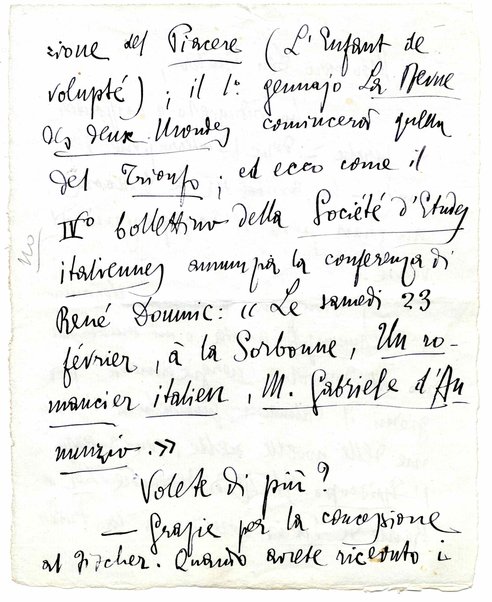 zione del Piacere (L'Enfant de
volupté) ; il 1° gennajo La Revue
des deux Mondes comincerà quella
del Trionfo ; ed ecco come il
IV° bollettino della Société d'Etudes
No
italiennes annunzia la conferenza di
René Doumic: « Le samedi 23
février, à la Sorbonne, Un ro-
mancier italien, M. Gabriele d'An
nunzio. »
Volete di più?
— Grazie per la concessione
al Fischer. Quando avrete ricevuto i